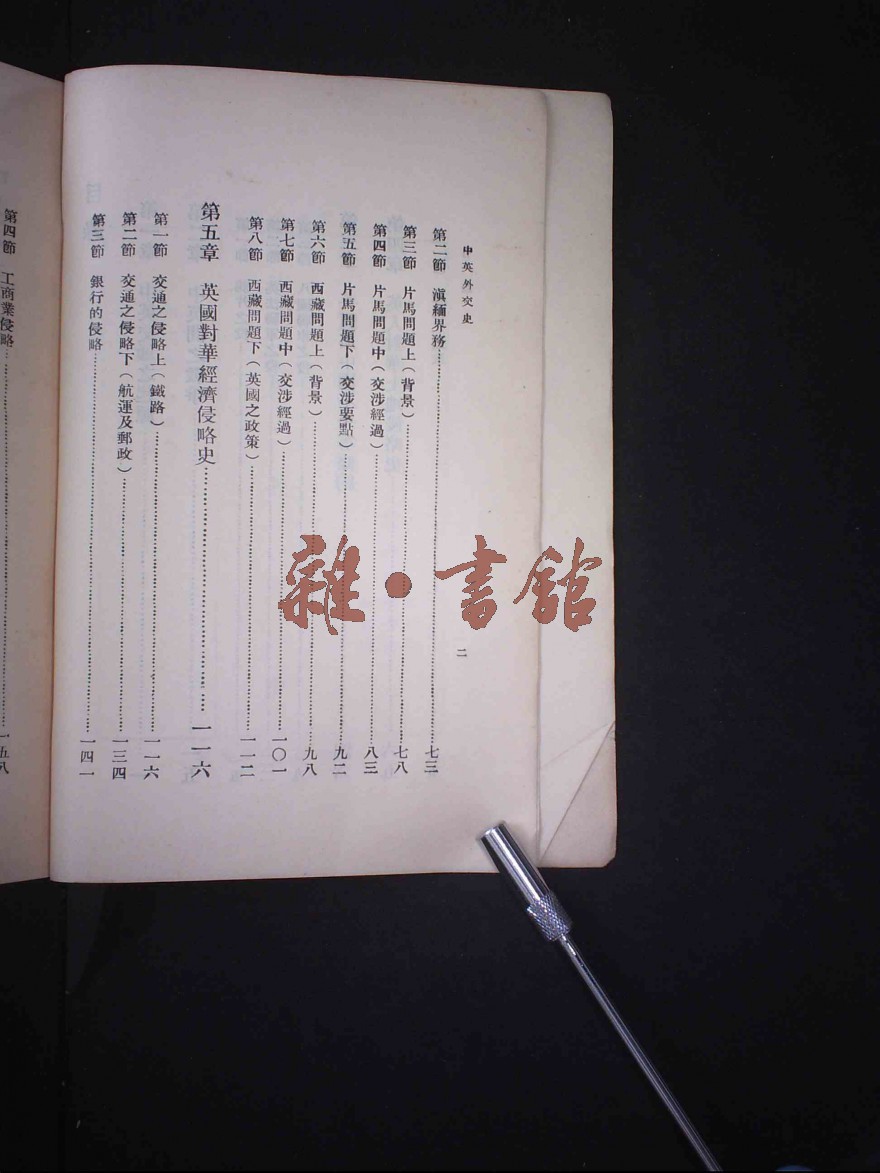 中英外交史
二
第二節 滇緬界務……七三
第三節 片馬問題上(背景)……七八
第四節 片馬問題中(交涉經過)……八三
第五節 片馬問題下(交涉要點)……九二
第六節 西藏問題上(背景)……九八
第七節 西藏問題中(交涉經過)……一〇一
第八節 西藏問題下(英國之政策)……一一二
第五章 英國對華經濟侵略史……一一六
第一節 交通之侵略上(鐵路)……一一六
第二節 交通之侵略下(航運及郵政)……一三四
第三節 銀行的侵略……一四一
第四節 工商業侵略……一五八
雜·書館